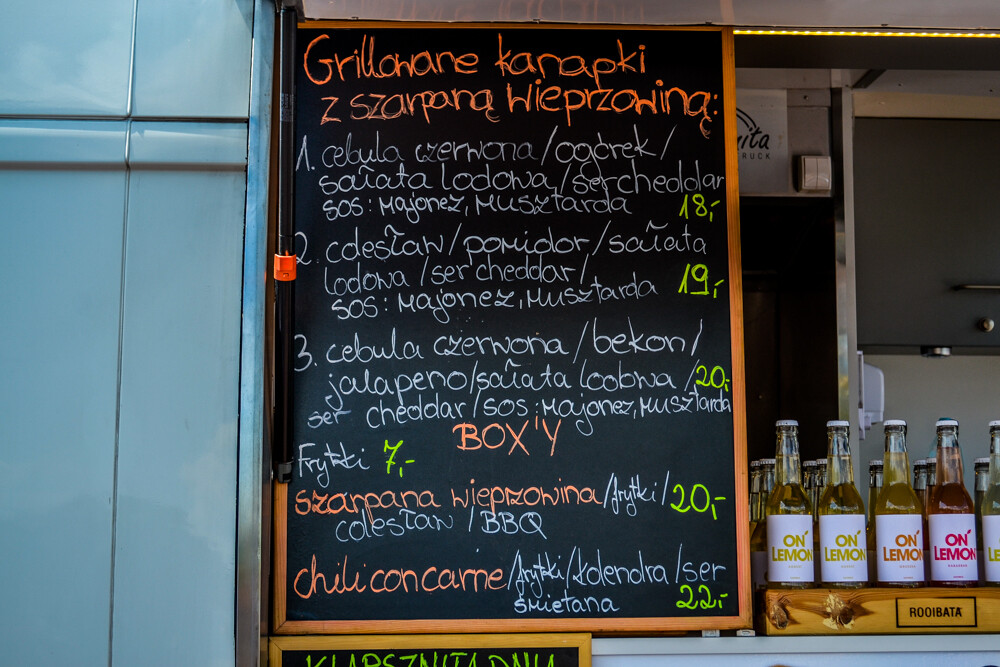 Grillowane kanapki
z szarpaną wieprzowiną:
1. cebula czerwona/ogórek/
sałata lodowa/ser cheddar
sos: majonez, musztarda 18,-
2. colesław/pomidor/sałata
lodowa/ser cheddar/
sos: majonez, musztarda 19,-
3. cebula czerwona/bekon/
jalapeno/sałata loobwa/20,-
ser cheddar/sos: majonez, musztarda
BOX'Y
Frytki 7,-
szarpana wieprzowina/frytki/ 20,-
colesław/BBQ
chili con carne/frytki/kolendra/ser
śmietana 22,-
RUCK
ON LEMON
ON LEMON
ON LEMON
ON LEMON
ROOIBATA